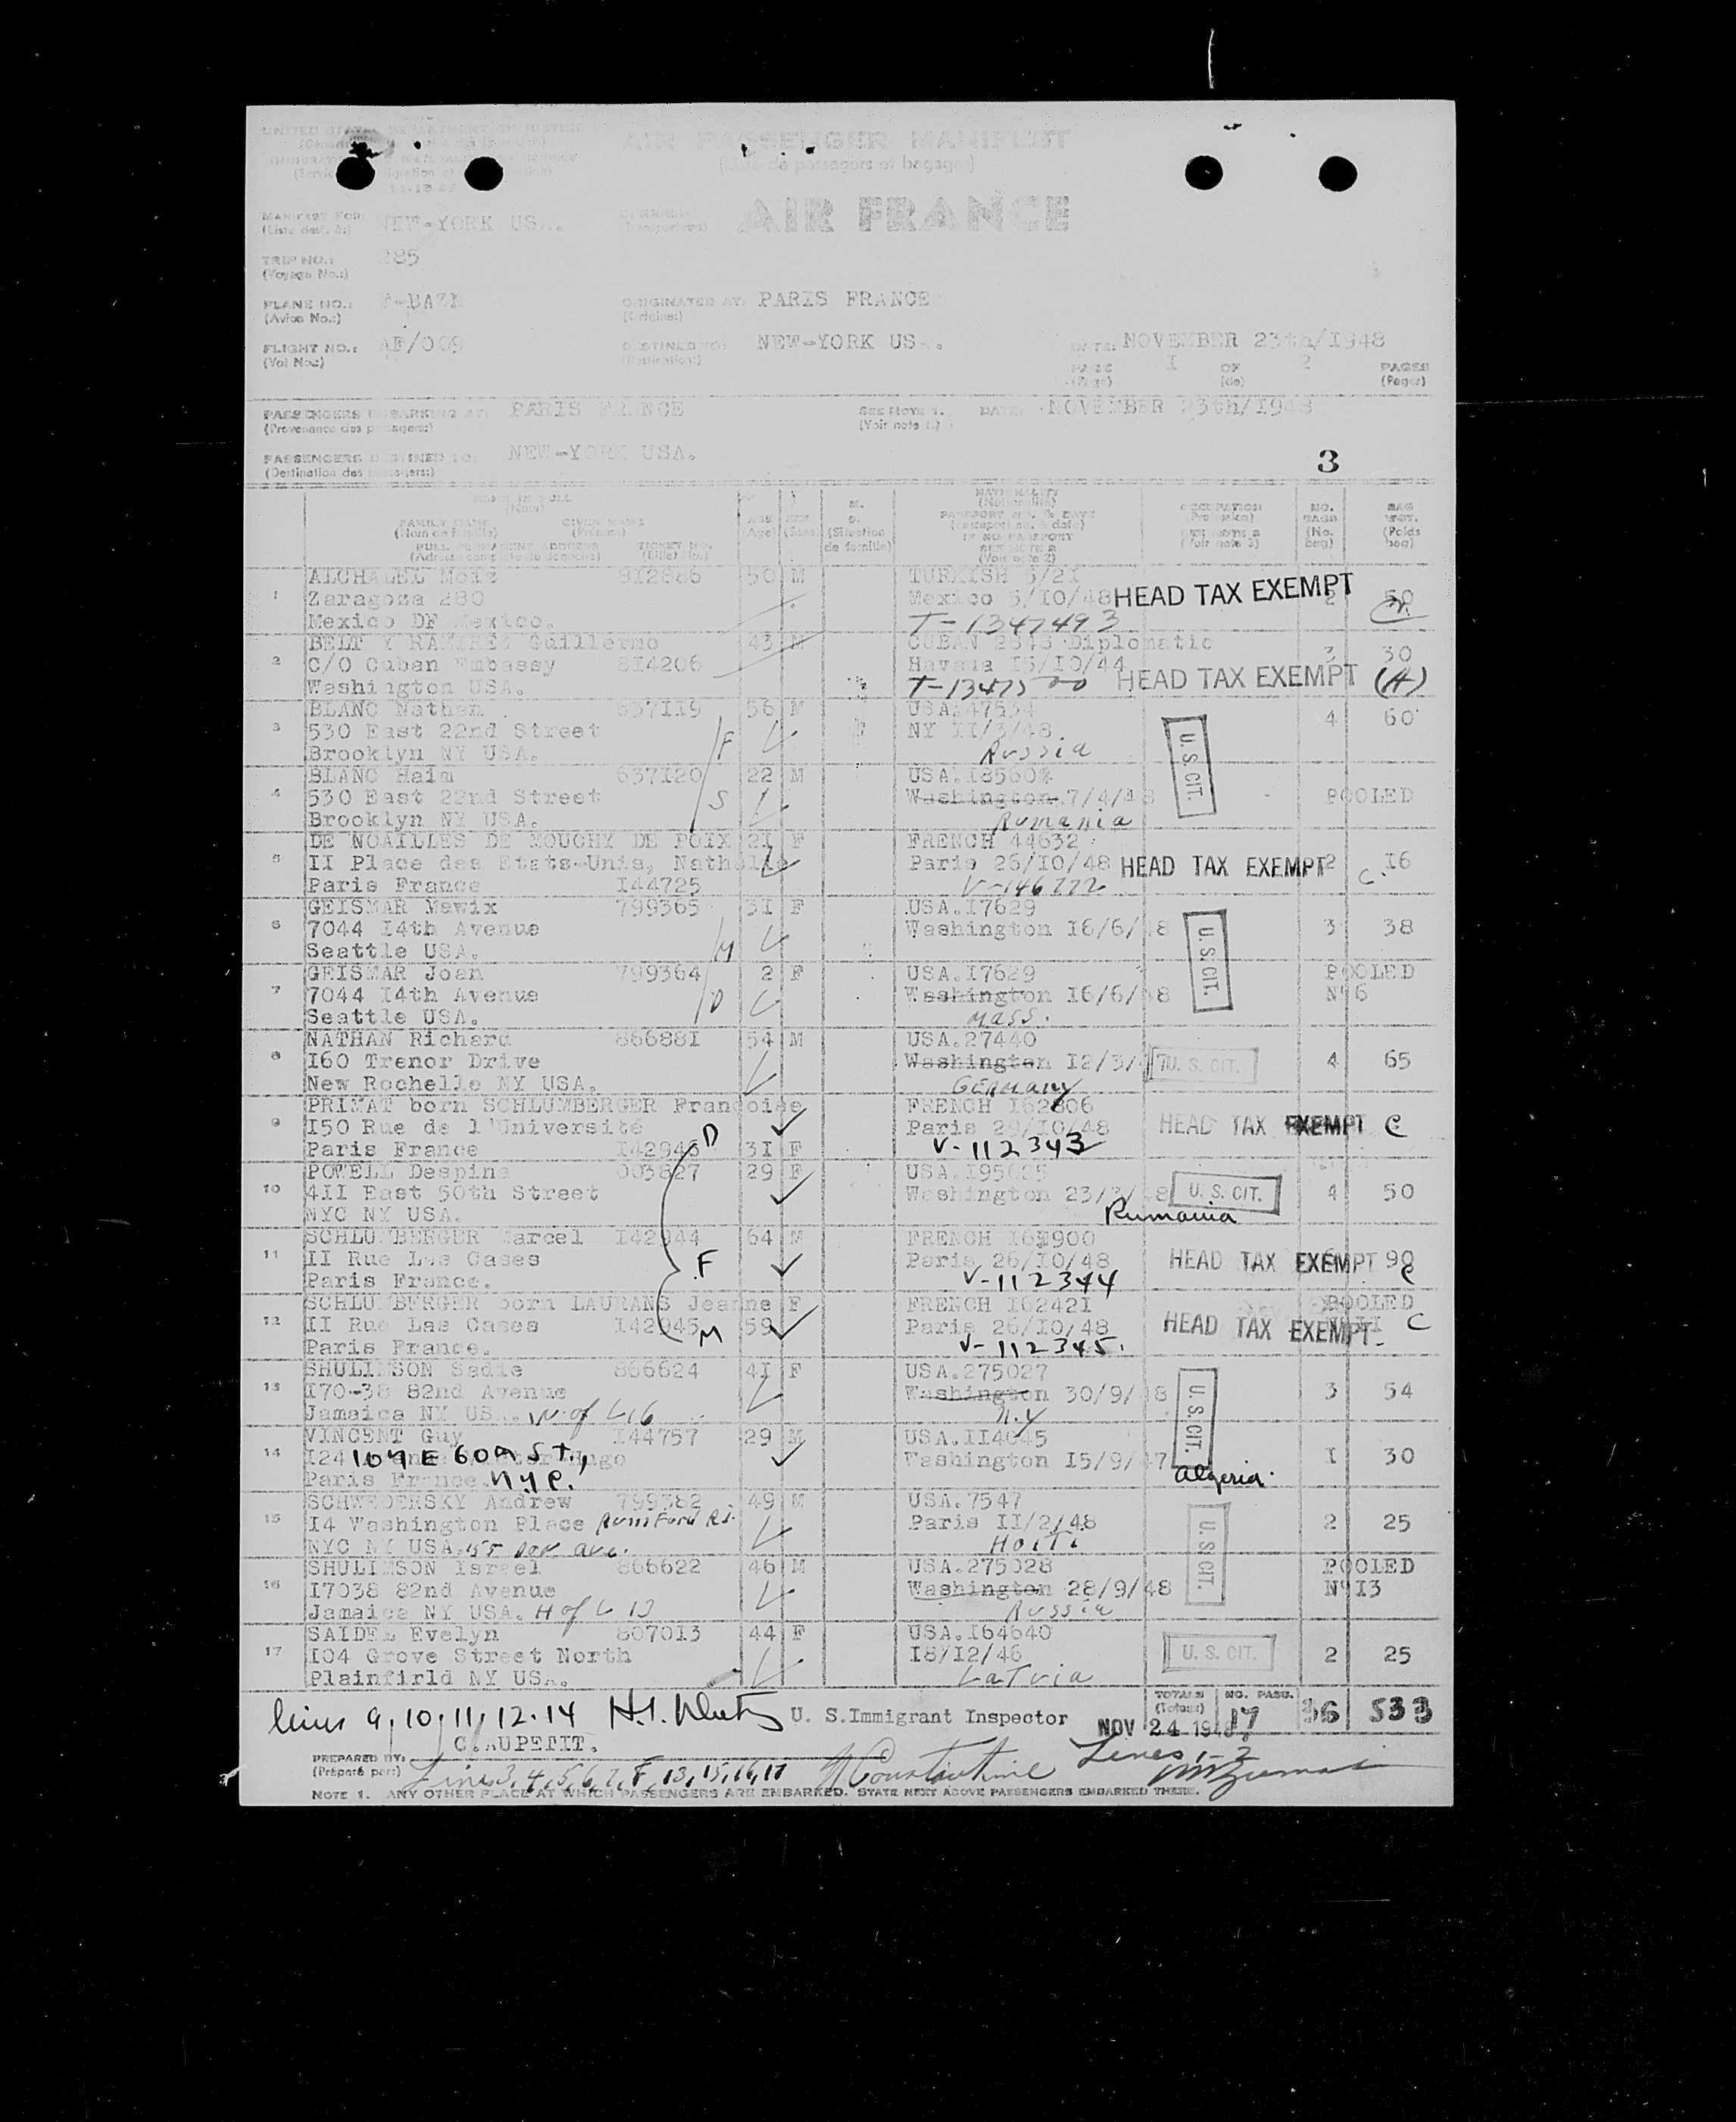 UNITED STATES DEPARTMENT OF JUSTICE
AIR PASSENGER MANIFEST
(Liste de passagers et bagages)
MANIFEST FOR: NEW-YORK US
(Liste dest. à:)
AIR FRANCE
TRIP NO.: 285
(Voyage No.:)
PLANE NO.:
(Avion No.:)
ORIGINATED AT: PARIS FRANCE
(Origine:)
FLIGHT NO.: AF/009
(Vol No.:)
DESTINED TO: NEW-YORK US .
(Destination:)
DATE: NOVEMBER 23th/I948
PAGE I OF 2 PAGES
(Page) (de) (Pages)
PASSENGERS EMBARKING AT: PARIS FRANCE
(Provenance des passagers:)
SEE NOTE 1. DATE: NOVEMBER 23th/I948
(Voir note 1.)
PASSENGERS DESTINED TO: NEW-YORK USA.
(Destination des passagers:)
3
NAME IN FULL
(Nom)
FAMILY NAME GIVEN NAME
(Nom de famille) (Prénom)
FULL PERMANENT ADDRESS TICKET NO.
AGE (Age) SEX (Sexe) M. S. (Situation de famille)
NATIONALITY
PASSPORT NO. & DATE
(Passeport no. & date)
IF NO PASSPORT
SEE NOTE 2
(Voir note 2)
OCCUPATION
SEE NOTE 3
(Voir note 3)
NO. BAGS (No. bag)
BAG WGT. (Poids bag)
1 ALCHALEL Moiz 812886 50 M TURKISH 5/21
Zaragoza 280 Mexico 5/IO/48 HEAD TAX EXEMPT 2 50
Mexico DF Mexico. T-1347493
2 BELT Y RAMIREZ Guillermo 43 M CUBAN 2848 Diplomatic
C/O Cuban Embassy 814206 Havana I5/IO/44 3 30
Washington USA. T-1347500 HEAD TAX EXEMPT (A)
3 BLANC Nathan 637II9 56 M USA.47534 4 60
530 East 22nd Street F NY II/3/48. U.S. CIT.
Brooklyn NY USA. Russia
4 BLANC Haim 637I20 22 M USA.I8560
530 East 22nd Street S Washington 7/4/48 POOLED
Brooklyn NY USA. Rumania
5 DE NOAILLES DE MOUCHY DE POIX 2I F FRENCH 44632
II Place des Etats-Unis, Nathalie Paris 26/IO/48 HEAD TAX EXEMPT 2 I6
Paris France I44725 V-146772 C
6 GEISMAR Mawix 799365 3I F USA.I7629
7044 I4th Avenue Washington I6/6/48 U.S. CIT. 3 38
Seattle USA. M
7 GEISMAR Joan 799364 2 F USA.I7629 POOLED
7044 I4th Avenue D Washington I6/6/48 N°6
Seattle USA. Mass.
8 NATHAN Richard 86688I 54 M USA.27440
I60 Trenor Drive Washington I2/3/47 U. S. CIT. 4 65
New Rochelle NY USA. Germany
9 PRIMAT born SCHLUMBERGER Françoise FRENCH I62806
I50 Rue de l'Université Paris 29/IO/48 HEAD TAX EXEMPT C
Paris France I42946 D 3I F V-112343
10 POWELL Despina 003827 29 F USA.
4II East 50th Street Washington 23/3/48 U. S. CIT. 4 50
NYC NY USA. Rumania
11 SCHLUMBERGER Marcel I42944 64 M FRENCH
II Rue Las Cases F Paris 26/IO/48 HEAD TAX EXEMPT 90
Paris France. V-112344 C
12 SCHLUMBERGER born LAURANS Jeanne F FRENCH I6242I POOLED
II Rue Las Cases I42945 59 Paris 26/IO/48 HEAD TAX EXEMPT C
Paris France. M V-112345.
13 SHULIMSON Sadie 866624 4I F USA.275027
I70-38 82nd Avenue Washington 30/9/48 U.S. CIT. 3 54
Jamaica NY US . W of L16 N.Y
14 VINCENT Guy I44757 29 M USA.II4045
I24 Hugo 109 E 60th St., Washington I5/9/47 I 30
Paris France. N.Y.C. Algeria.
15 SCHWEDERSKY Andrew 799382 49 M USA.7547
I4 Washington Place Rumford Rd. Paris II/2/48 U.S. CIT. 2 25
NYC NY USA. Haiti
16 SHULIMSON Israel 866622 46 M USA.275028 POOLED
I7038 82nd Avenue Washington 28/9/48 N°I3
Jamaica NY USA. H of L 13 Russia
17 SAIDEL Evelyn 807013 44 F USA.I64640
I04 Grove Street North I8/I2/46 U. S. CIT. 2 25
Plainfirld NY USA. Latvia
lines 9, 10, 11, 12. 14 U. S.Immigrant Inspector
TOTALS (Totaux) NO. PASS. 17 36 533
NOV 24 1948
C.AUPETIT.
PREPARED BY:
(Préparé par:)
Lines 3, 4, 5, 6, 7, 8, 13, 15, 16, 17 Constantine
Lines 1-2
NOTE 1. ANY OTHER PLACE AT WHICH PASSENGERS ARE EMBARKED. STATE NEXT ABOVE PASSENGERS EMBARKED THERE.